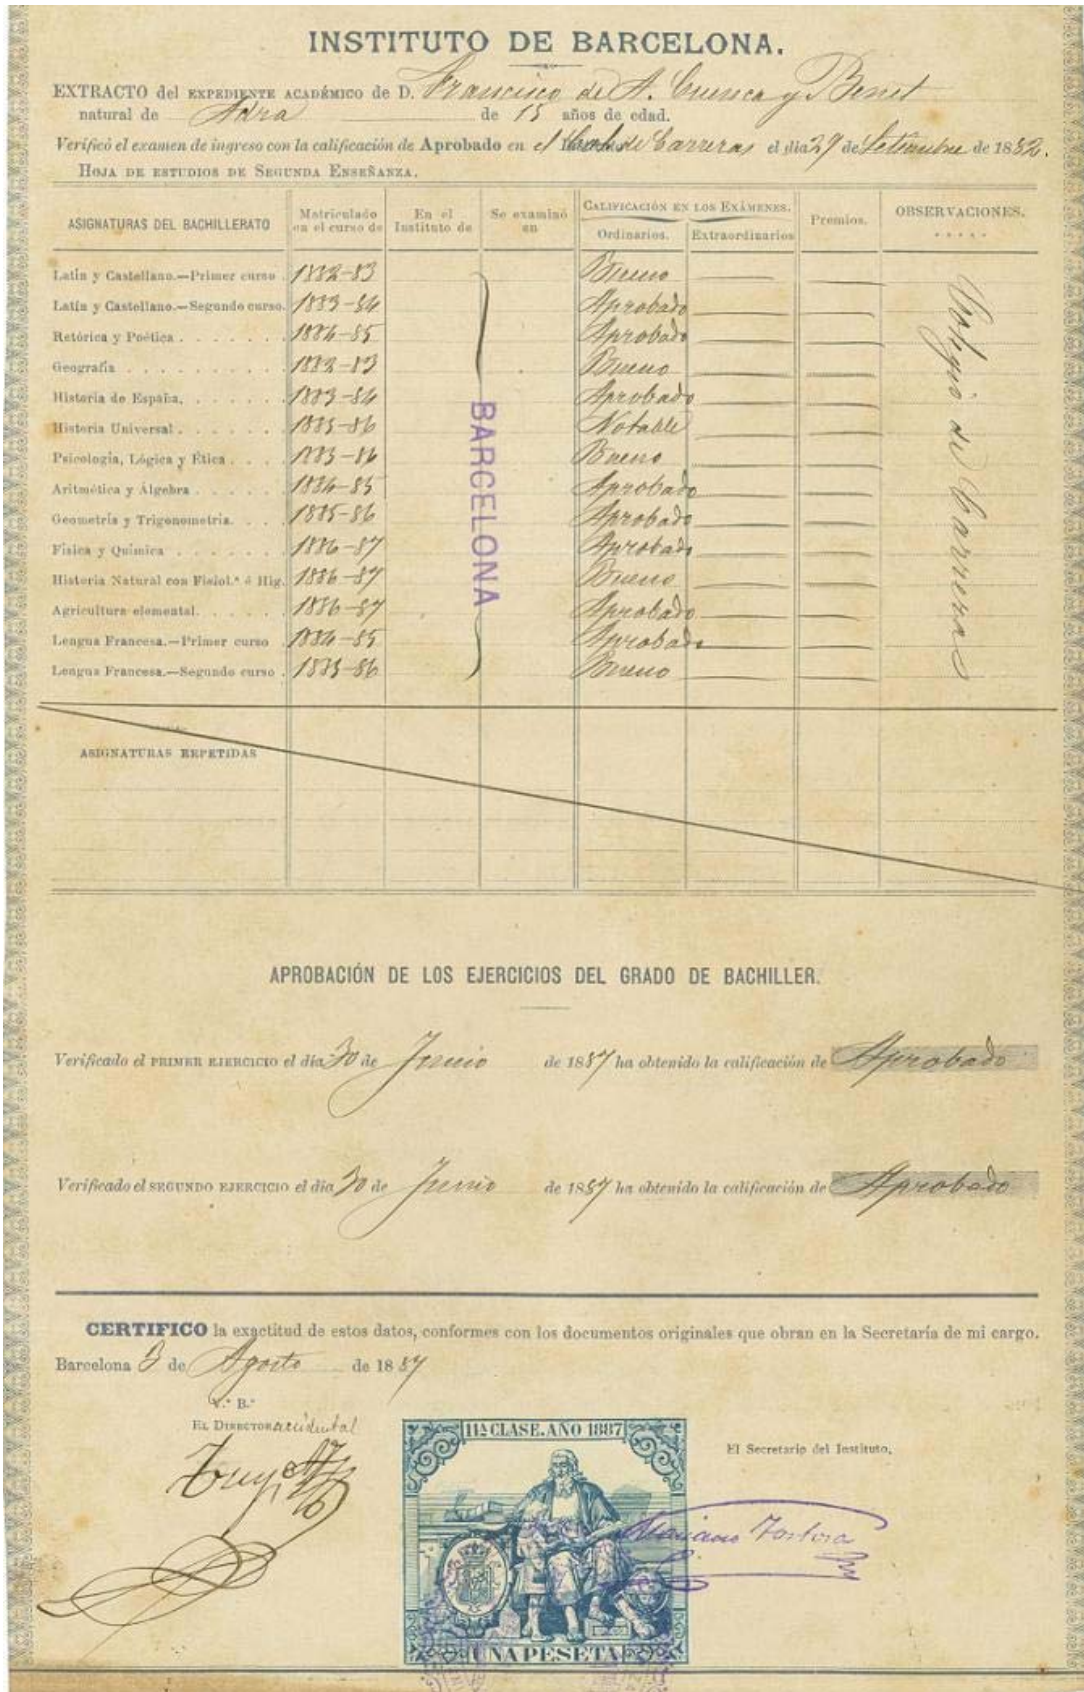 INSTITUTO DE BARCELONA.
EXTRACTO del EXPEDIENTE ACADÉMICO de D. Francisco de A. Cuenca y Benet
natural de Adra de 15 años de edad.
Verificó el examen de ingreso con la calificación de Aprobado en el de Carreras el día 29 de Setiembre de 1882.
HOJA DE ESTUDIOS DE SEGUNDA ENSEÑANZA.
ASIGNATURAS DEL BACHILLERATO Matriculado en el curso de En el Instituto de Se examinó en CALIFICACIÓN EN LOS EXÁMENES. Ordinarios. Extraordinarios Premios. OBSERVACIONES.
Latín y Castellano.—Primer curso . 1882-83 Bueno
Latín y Castellano.—Segundo curso. 1883-84 Aprobado
Retórica y Poética . . . . . . . 1884-85 Aprobado
Geografía . . . . . . . . . . 1882-83 Bueno
Historia de España. . . . . . . 1883-84 Aprobado
Historia Universal . . . . . . . 1885-86 Notable
Psicología, Lógica y Ética . . . . 1885-86 Bueno
Aritmética y Álgebra . . . . . . 1884-85 Aprobado
Geometría y Trigonometría. . . . 1885-86 Aprobado
Física y Química . . . . . . . 1886-87 Aprobado
Historia Natural con Fisiol.ª é Hig. 1886-87 Bueno
Agricultura elemental. . . . . . 1886-87 Aprobado
Lengua Francesa.—Primer curso . 1884-85 Aprobado
Lengua Francesa.—Segundo curso . 1885-86 Bueno
BARCELONA
Colegio de Carreras
ASIGNATURAS REPETIDAS
APROBACIÓN DE LOS EJERCICIOS DEL GRADO DE BACHILLER.
Verificado el PRIMER EJERCICIO el día 30 de Junio de 1887 ha obtenido la calificación de Aprobado
Verificado el SEGUNDO EJERCICIO el día 30 de Junio de 1887 ha obtenido la calificación de Aprobado
CERTIFICO la exactitud de estos datos, conformes con los documentos originales que obran en la Secretaría de mi cargo.
Barcelona 3 de Agosto de 1887
V.º B.º
EL DIRECTOR accidental
11ª CLASE. AÑO 1887
El Secretario del Instituto,
Mariano Tortosa
UNA PESETA